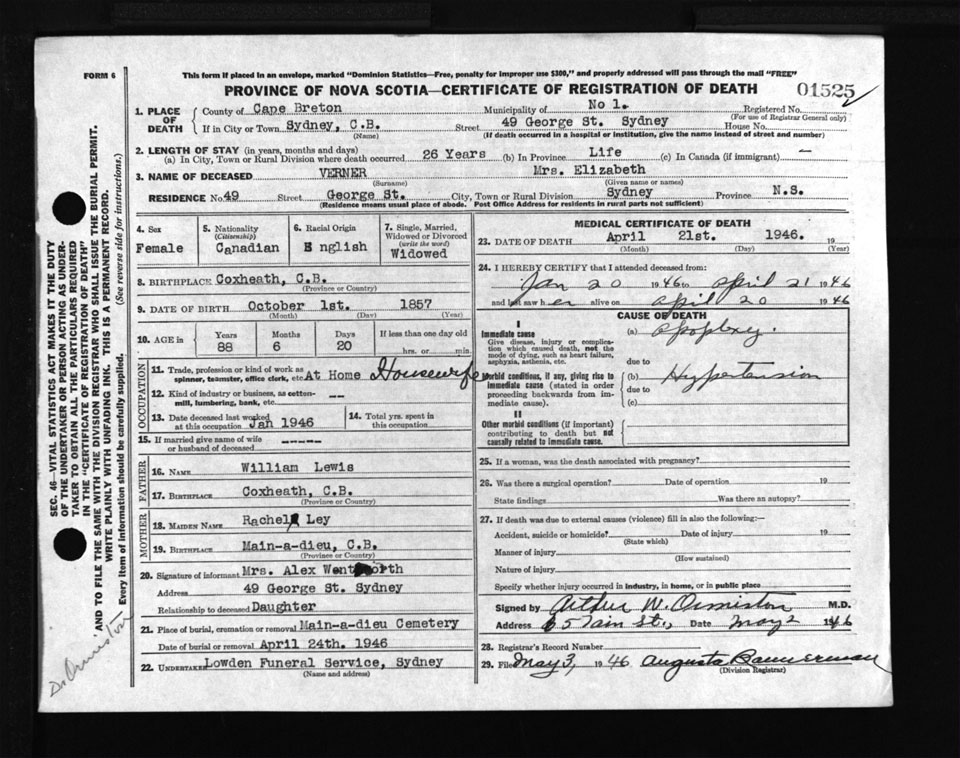 FORM 6
This form if placed in an envelope, marked "Dominion Statistics—Free, penalty for improper use $300," and properly addressed will pass through the mail "FREE"
PROVINCE OF NOVA SCOTIA—CERTIFICATE OF REGISTRATION OF DEATH
01525
1. PLACE OF DEATH
County of Cape Breton Municipality of No 1. Registered No.
(For use of Registrar General only)
If in City or Town Sydney, C.B. Street 49 George St. Sydney House No.
(Name) (If death occurred in a hospital or institution, give the name instead of street and number)
2. LENGTH OF STAY (in years, months and days)
(a) In City, Town or Rural Division where death occurred 26 Years (b) In Province Life (c) In Canada (if immigrant) —
3. NAME OF DECEASED VERNER Mrs. Elizabeth
(Surname) (Given name or names)
RESIDENCE No. 49 Street George St. City, Town or Rural Division Sydney Province N.S.
(Residence means usual place of abode. Post Office Address for residents in rural parts not sufficient)
4. Sex
Female
5. Nationality
(Citizenship)
Canadian
6. Racial Origin
English
7. Single, Married, Widowed or Divorced
(write the word)
Widowed
8. BIRTHPLACE Coxheath, C.B.
(Province or Country)
9. DATE OF BIRTH October 1st. 1857
(Month) (Day) (Year)
10. AGE in
Years Months Days If less than one day old
88 6 20 hrs. or min.
OCCUPATION
11. Trade, profession or kind of work as spinner, teamster, office clerk, etc. At Home Housewife
12. Kind of industry or business, as cotton-mill, lumbering, bank, etc. --
13. Date deceased last worked at this occupation Jan 1946
14. Total yrs. spent in this occupation
15. If married give name of wife or husband of deceased -----
FATHER
16. NAME William Lewis
17. BIRTHPLACE Coxheath, C.B.
(Province or Country)
MOTHER
18. MAIDEN NAME Rachel Ley
19. BIRTHPLACE Main-a-dieu, C.B.
(Province or Country)
20. Signature of informant Mrs. Alex Wentworth
Address 49 George St. Sydney
Relationship to deceased Daughter
21. Place of burial, cremation or removal Main-a-dieu Cemetery
Date of burial or removal April 24th. 1946
22. UNDERTAKER Lowden Funeral Service, Sydney
(Name and address)
MEDICAL CERTIFICATE OF DEATH
23. DATE OF DEATH April 21st. 1946. 19
(Month) (Day) (Year)
24. I HEREBY CERTIFY that I attended deceased from:
Jan 20 1946 to April 21 1946
and last saw her alive on April 20 1946
CAUSE OF DEATH
I
Immediate cause
Give disease, injury or complication which caused death, not the mode of dying, such as heart failure, asphyxia, asthenia, etc.
(a) Apoplexy.
due to
Morbid conditions, if any, giving rise to immediate cause (stated in order proceeding backwards from immediate cause).
(b) Hypertension
due to
(c)
II
Other morbid conditions (if important) contributing to death but not causally related to immediate cause.
25. If a woman, was the death associated with pregnancy?
26. Was there a surgical operation? Date of operation 19
State findings Was there an autopsy?
27. If death was due to external causes (violence) fill in also the following:—
Accident, suicide or homicide? Date of injury 19
(State which)
Manner of injury
(How sustained)
Nature of injury
Specify whether injury occurred in industry, in home, or in public place
Signed by Arthur W. Ormiston M.D.
Address St., Date May 2 1946
28. Registrar's Record Number
29. Filed May 3, 1946 Augusta Bannerman
(Division Registrar)
SEC. 46—VITAL STATISTICS ACT MAKES IT THE DUTY
OF THE UNDERTAKER OR PERSON ACTING AS UNDER-
TAKER TO OBTAIN ALL THE PARTICULARS REQUIRED
IN THE "CERTIFICATE OF REGISTRATION OF DEATH"
AND TO FILE THE SAME WITH THE DIVISION REGISTRAR WHO SHALL ISSUE THE BURIAL PERMIT.
WRITE PLAINLY WITH UNFADING INK. THIS IS A PERMANENT RECORD.
Every item of information should be carefully supplied. (See reverse side for instructions.)
Dr Ormiston